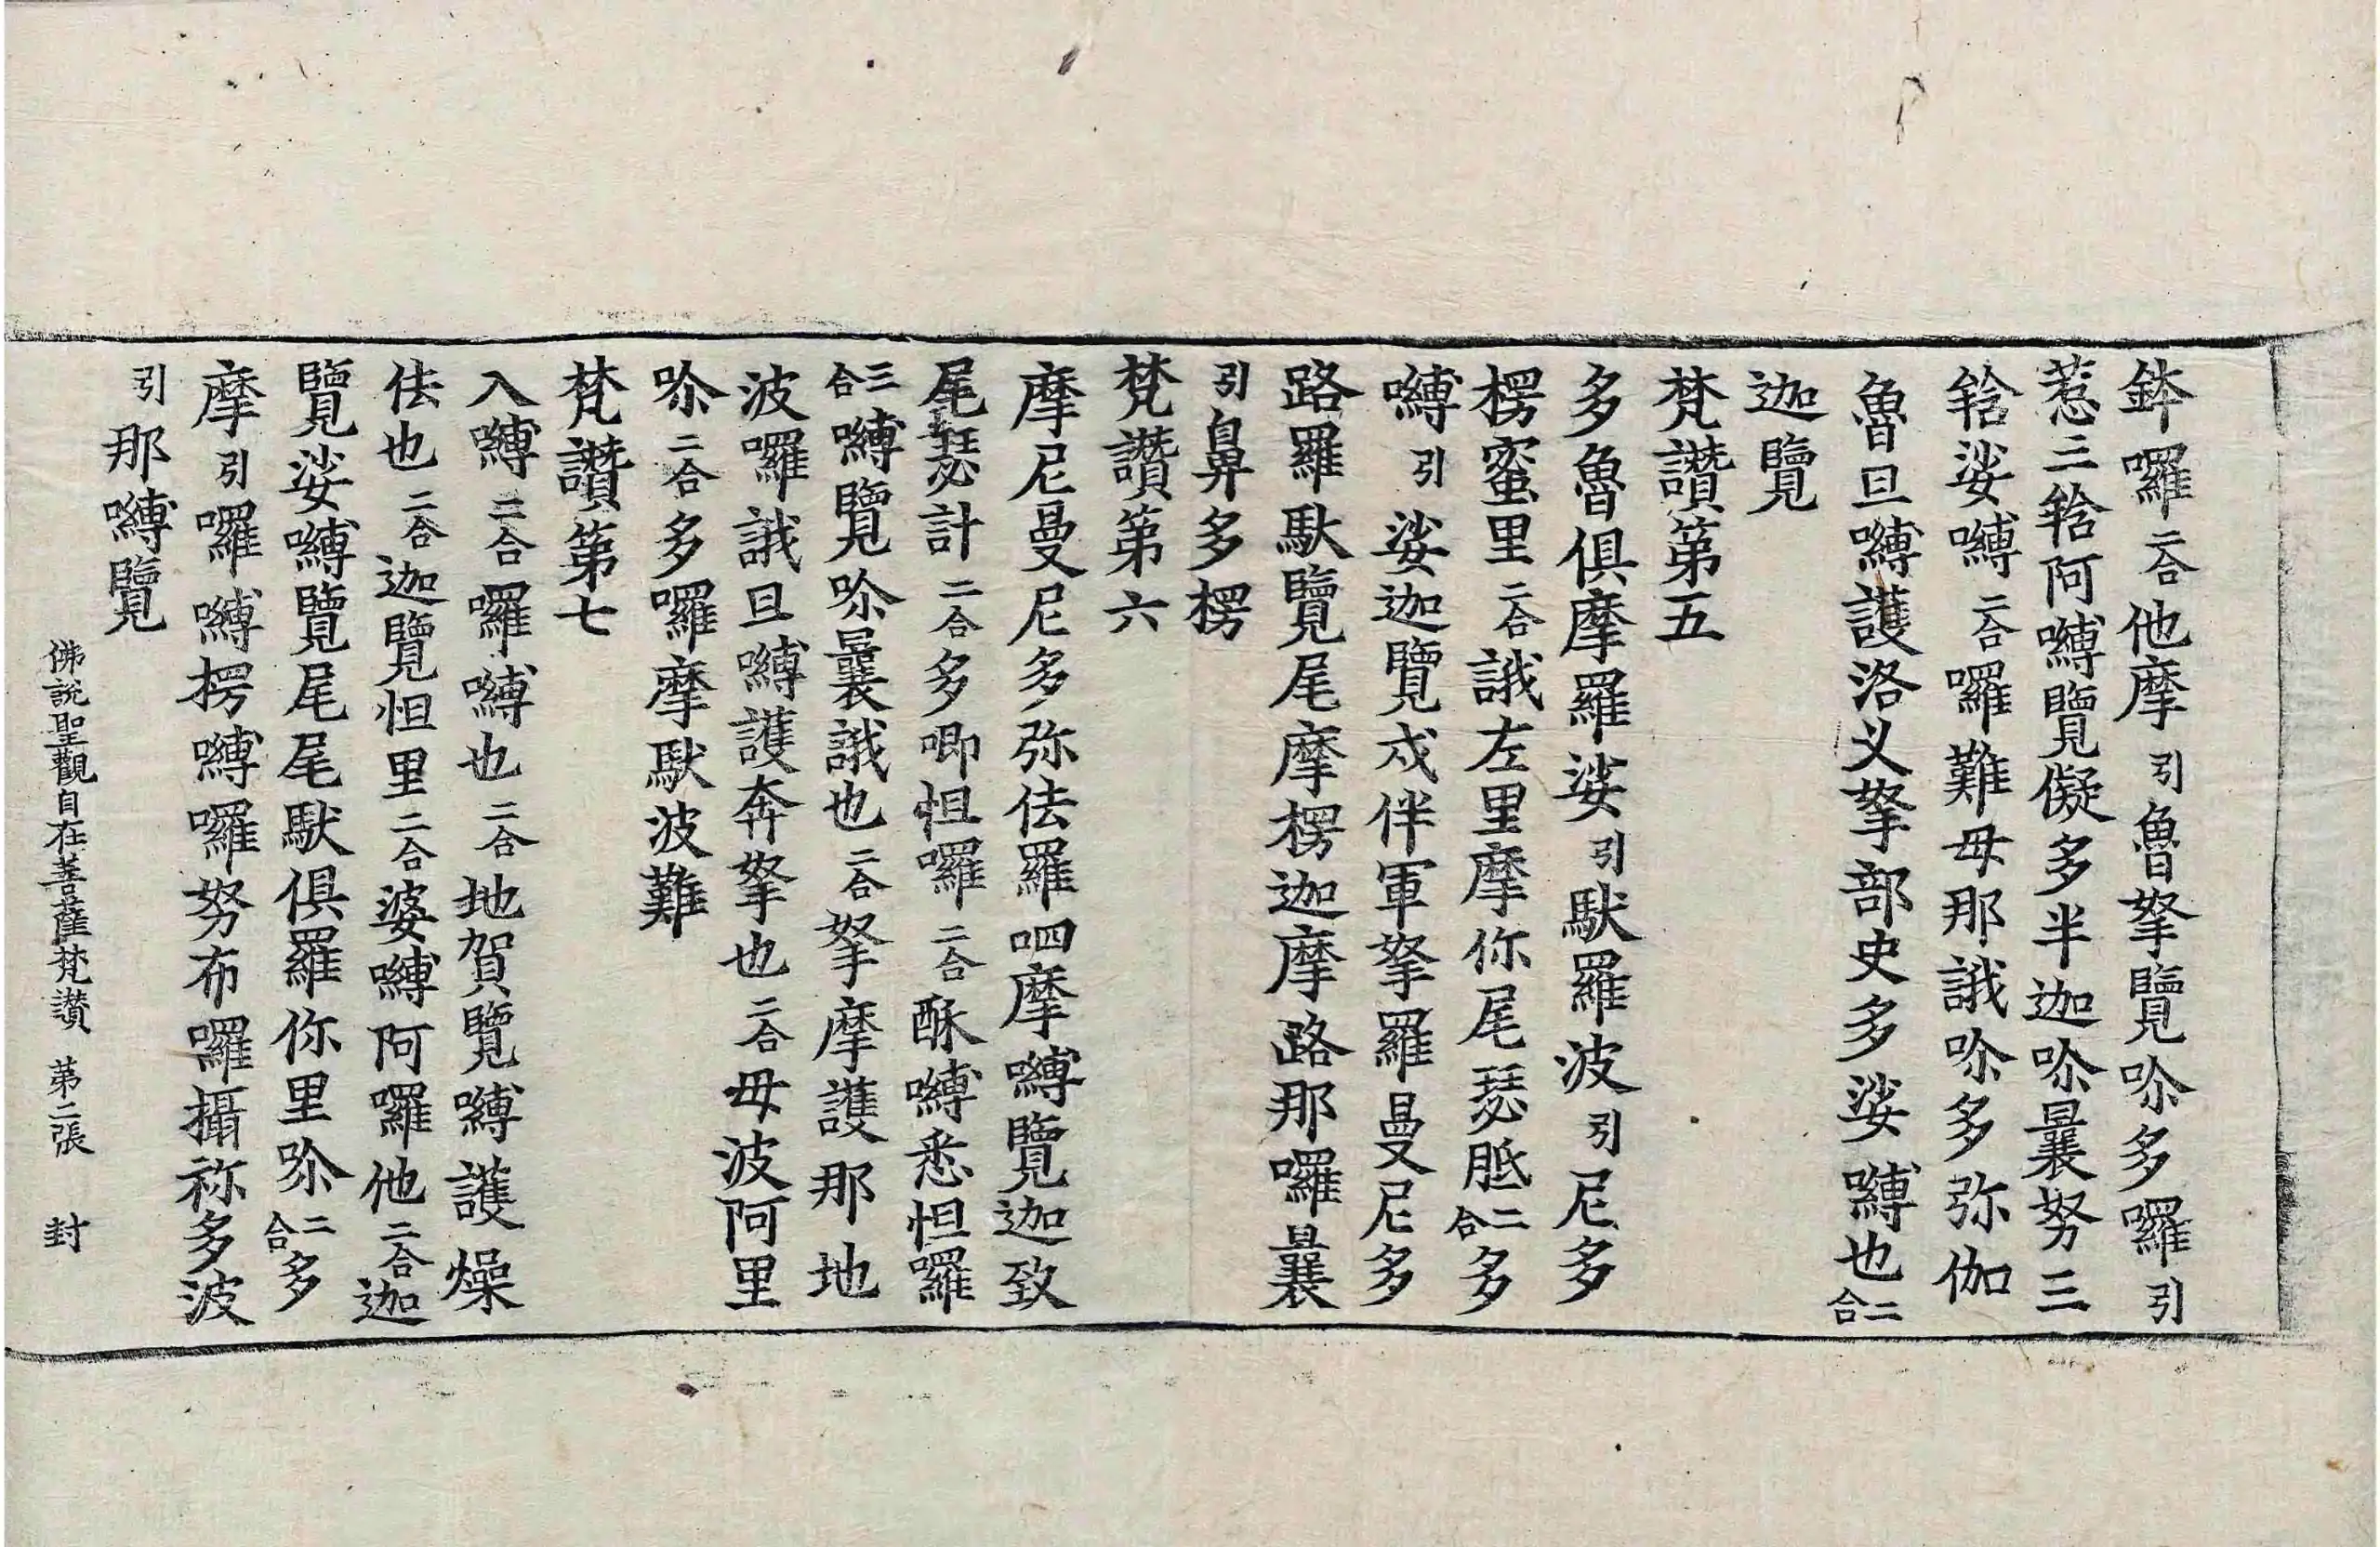 鉢囉二合他摩引魯拏覽吩多囉引
惹三䩭阿嚩覽儗多半迦吩曩努三
䩭娑嚩二合囉難母那誐吩多弥伽
魯旦嚩護洛义拏部史多娑嚩也二合
迦覽
梵讚第五
多魯俱摩羅娑引馱羅波引尼多
楞蜜里二合誐左里摩你尾瑟胝二合多
嚩引娑迦覽戍伴軍拏羅曼尼多
路羅馱覽尾摩楞迦摩路那囉曩
引鼻多楞
梵讚第六
摩尼曼尼多弥佉羅呬摩嚩覽迦致
尾瑟計二合多唧怛囉二合酥嚩悉怛囉
三合嚩覽吩曩誐也二合拏摩護那地
波囉誐旦嚩護奔拏也二合母波阿里
吩二合多囉摩馱波難
梵讚第七
入嚩二合囉嚩也二合地賀覽嚩護燥
佉也二合迦覽怛里二合婆嚩阿囉他二合迦
覽娑嚩覽尾尾馱俱羅你里吩二合多
摩引囉嚩楞嚩囉努布囉攝祢多波
引那嚩覽
佛說聖觀自在菩薩梵讚　第二張　封